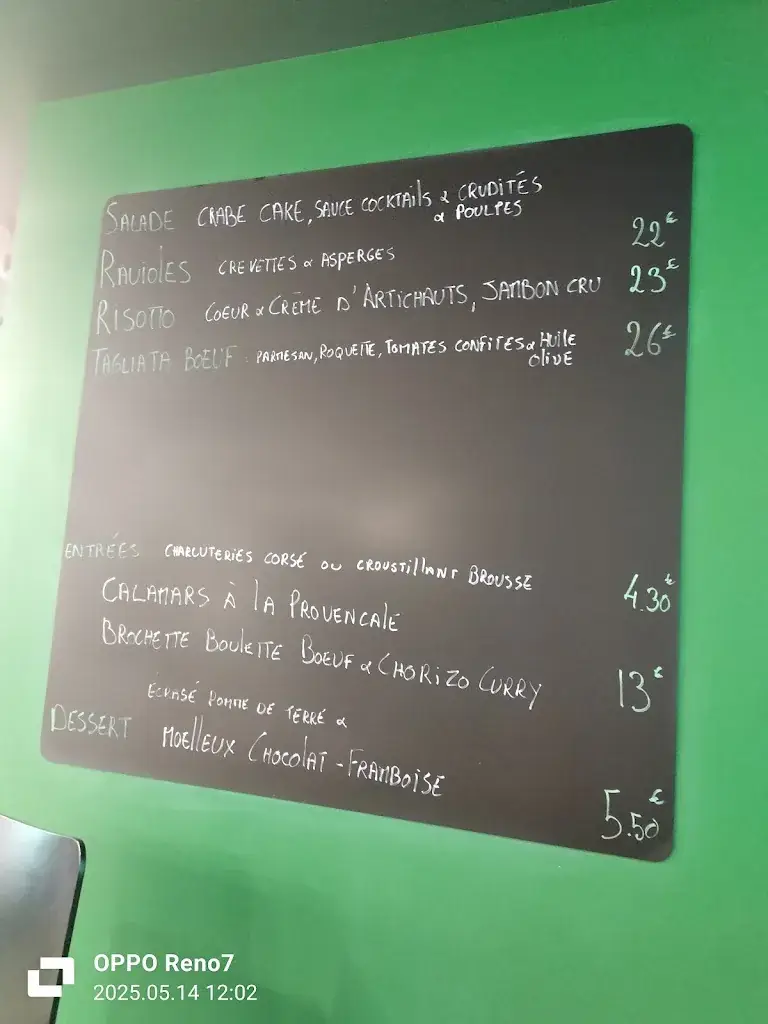 SALADE CRABE CAKE, SAUCE COCKTAILS & CRUDITÉS
& POULPES
22€
RAVIOLES CREVETTES & ASPERGES
23€
RISOTTO COEUR & CRÈME D'ARTICHAUTS, JAMBON CRU
26€
TAGLIATA BOEUF : PARMESAN, ROQUETTE, TOMATES CONFITES & HUILE
OLIVE
ENTRÉES CHARCUTERIES CORSÉ OU CROUSTILLANT BROUSSE
4.30€
CALAMARS À LA PROVENCALE
BROCHETTE BOULETTE BOEUF & CHORIZO CURRY
13€
ÉCRASÉ POMME DE TERRÉ &
DESSERT MOELLEUX CHOCOLAT - FRAMBOISE
5.50€
OPPO Reno7
2025.05.14 12:02